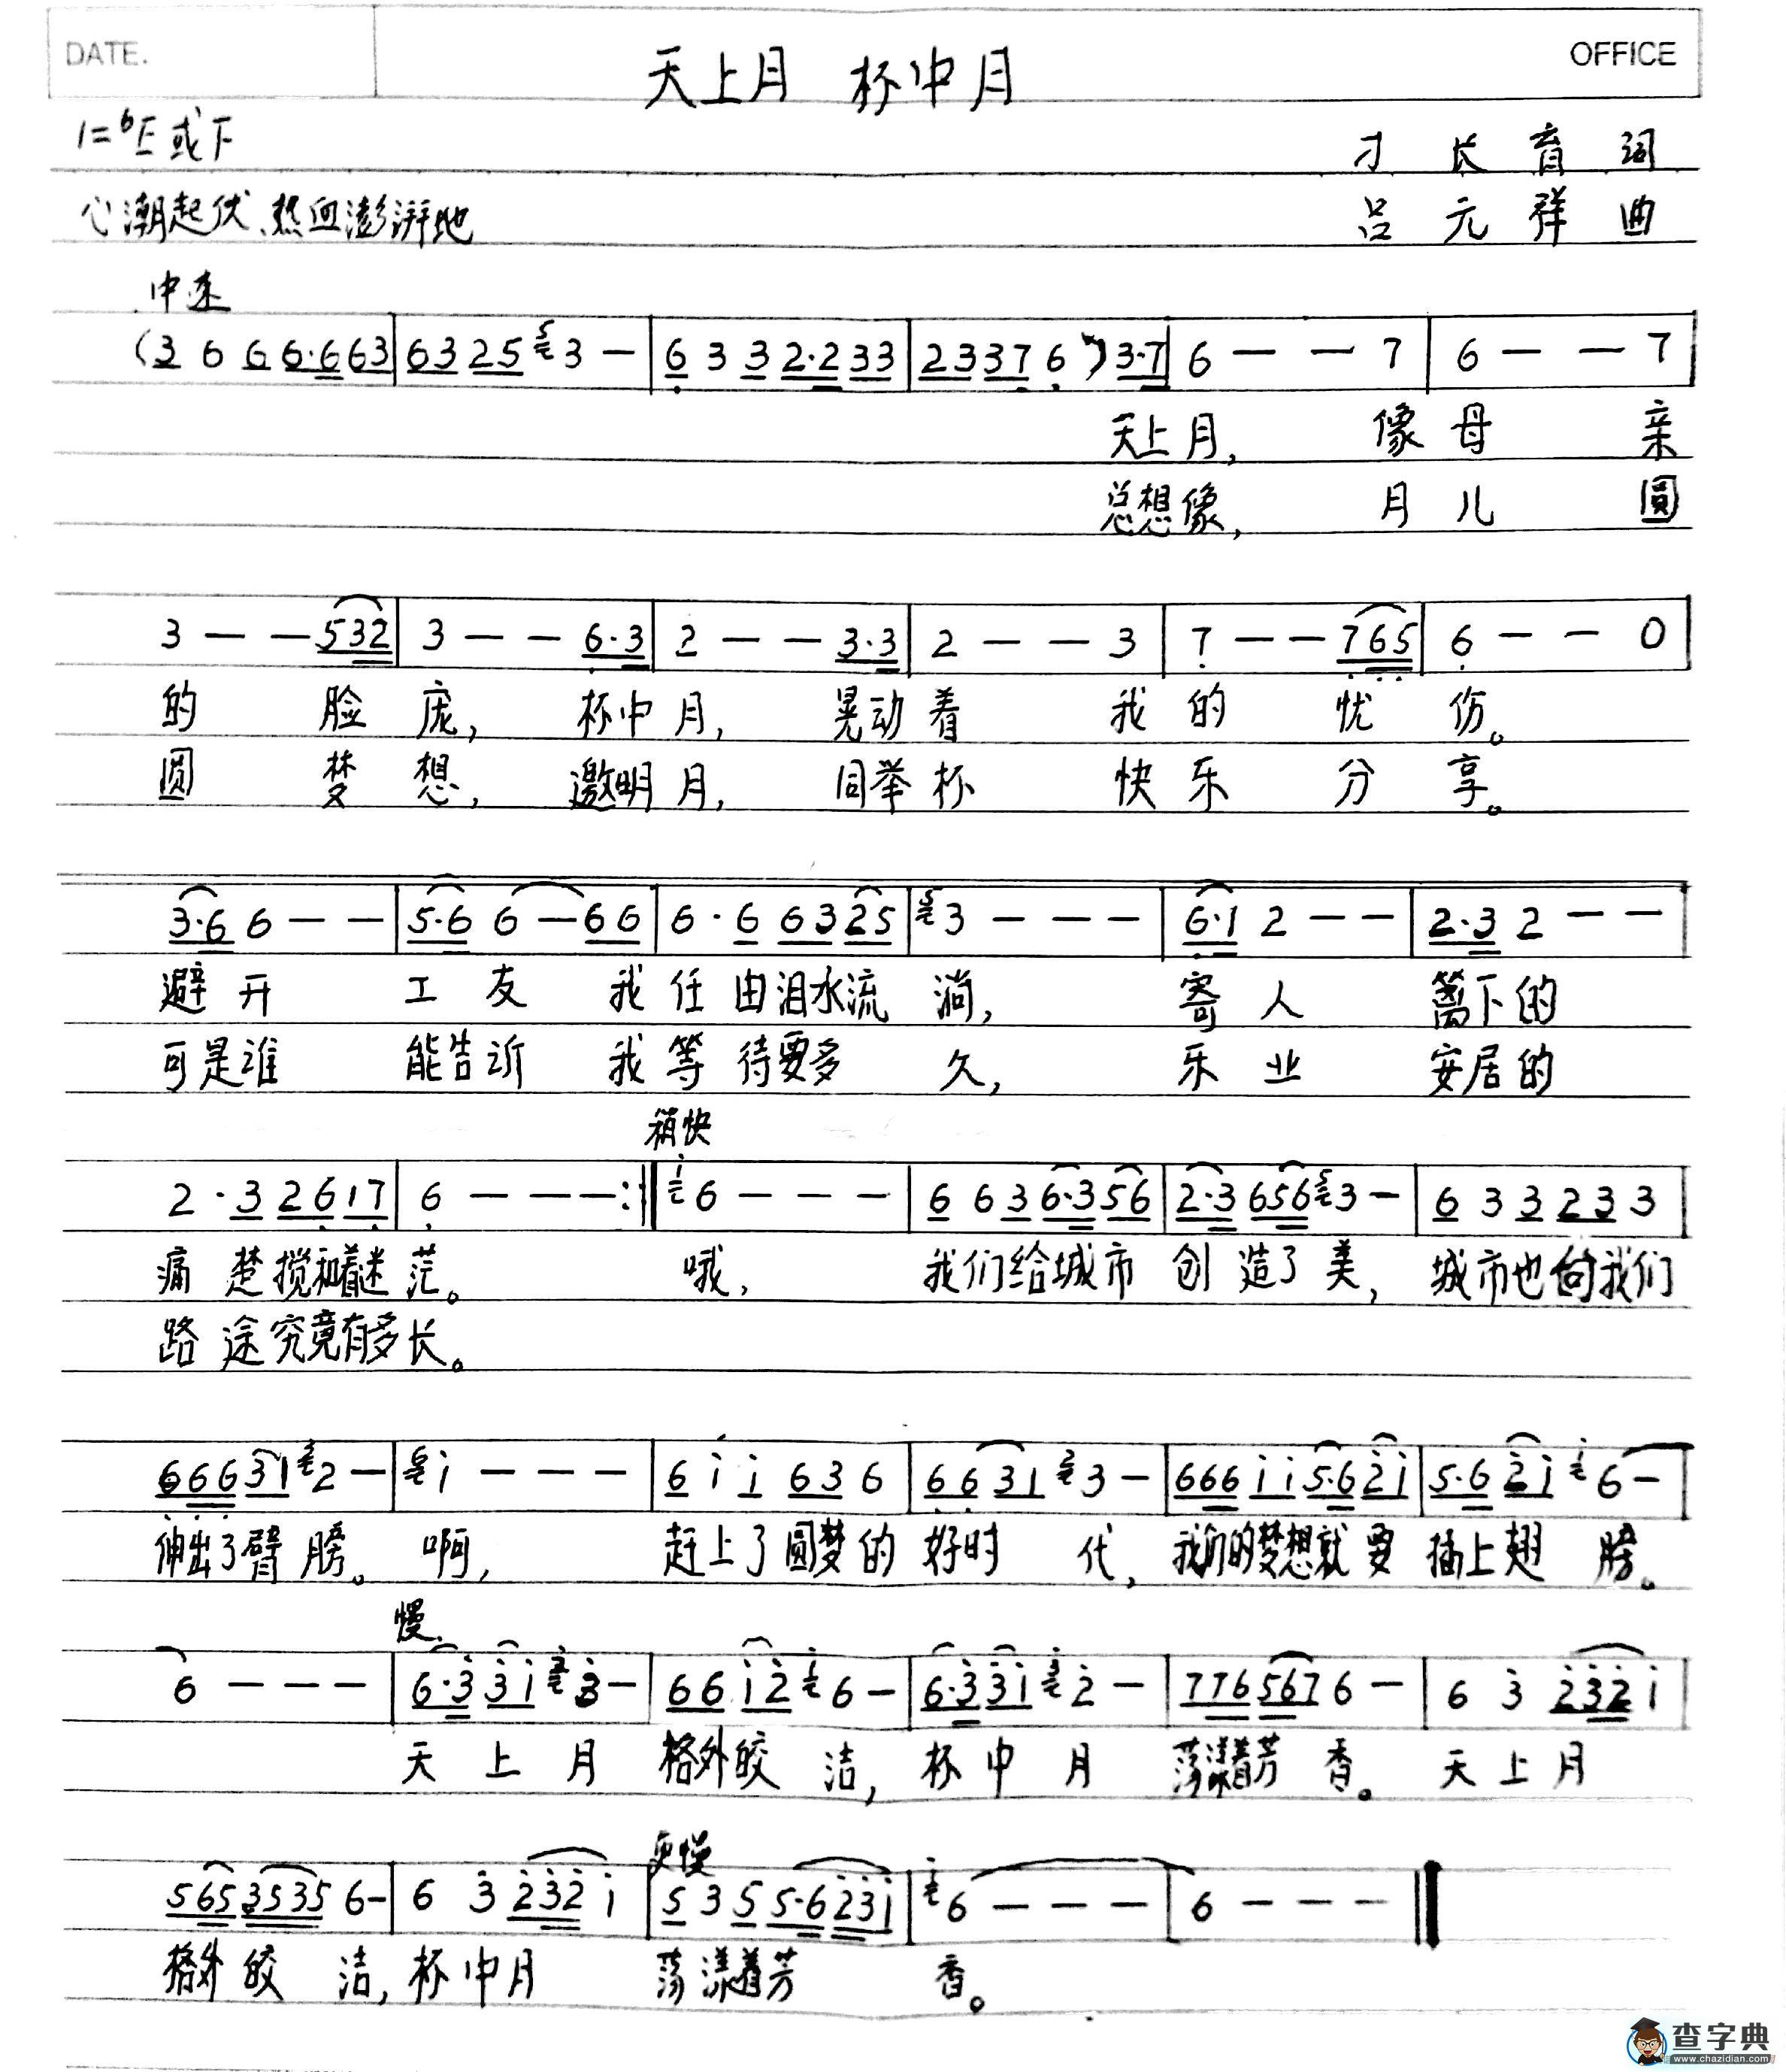 DATE.
天上月 杯中月
OFFICE
1=♭E或F
才长育 词
心潮起伏、热血澎湃地
吕元祥 曲
中速
(3 6 6 6·6 6 3 | 6 3 2 5 5 3 — | 6 3 3 2·2 3 3 | 2 3 3 7 6 ) 3·7 | 6 — — 7 | 6 — — 7 |
天上月, 像母亲
总想像, 月儿圆
3 — — 5 3 2 | 3 — — 6·3 | 2 — — 3·3 | 2 — — 3 | 7 — — 7 6 5 | 6 — — 0 |
的 脸 庞, 杯中月, 晃动着 我的 忧 伤。
圆 梦 想, 邀明月, 同举杯 快乐 分 享。
3·6 6 — — | 5·6 6 — 6 6 | 6 · 6 6 3 2 5 | 5 3 — — — | 6·1 2 — — | 2·3 2 — — |
避开 工友 我任由泪水流 淌, 寄人 篱下的
可是谁 能告诉 我等待要多 久, 乐业 安居的
稍快
2 · 3 2 6 1 7 | 6 — — — :‖ i 6 — — — | 6 6 3 6·3 5 6 | 2·3 6 5 6 5 3 — | 6 3 3 2 3 3 |
痛楚搅和着迷茫。 哦, 我们给城市 创造了美, 城市也向我们
路途究竟有多长。
6 6 6 3 1 3 2 — | 6 i — — — | 6 i i 6 3 6 | 6 6 3 1 2 3 — | 6 6 6 i i 5·6 2 i | 5·6 2 i i 6 — |
伸出了臂膀。 啊, 赶上了圆梦的 好时代, 我们的梦想就要 插上翅膀。
慢
6 — — — | 6·3 3 i 2 3 — | 6 6 i 2 i 6 — | 6·3 3 i 3 2 — | 7 7 6 5 6 7 6 — | 6 3 2 3 2 i |
天上月 格外皎洁, 杯中月 荡漾着芳香。 天上月
更慢
5 6 5 3 5 3 5 6 — | 6 3 2 3 2 i | 5 3 5 5·6 2 3 i | i 6 — — — | 6 — — — ‖
格外皎 洁, 杯中月 荡漾着芳 香。
查字典
www.chazidian.com